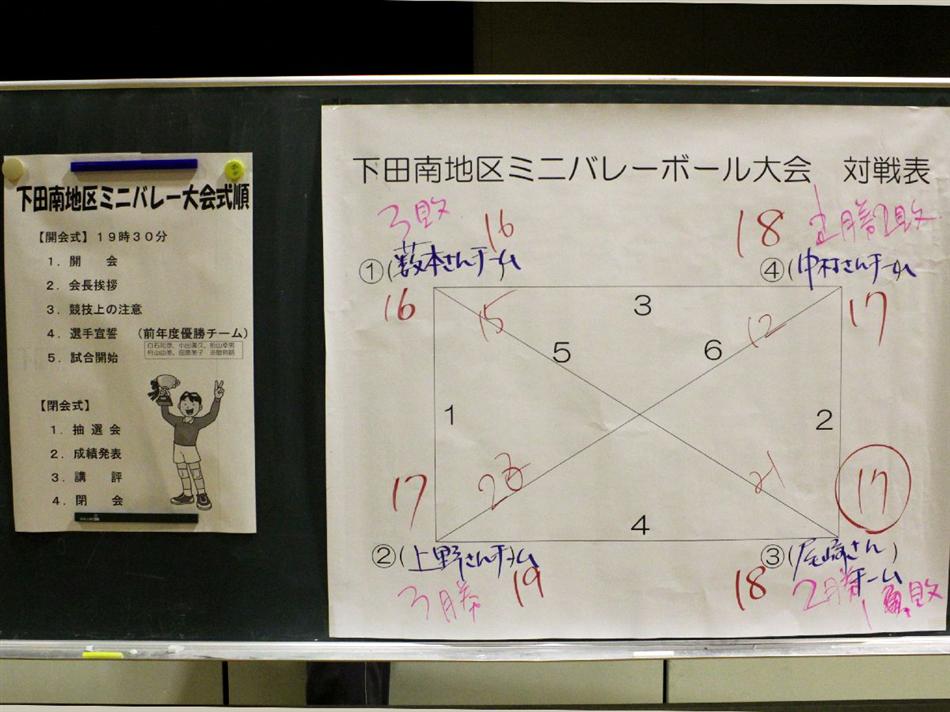 下田南地区ミニバレー大会式順
【開会式】19時30分
1．開　会
2．会長挨拶
3．競技上の注意
4．選手宣誓　（前年度優勝チーム）
5．試合開始
【閉会式】
1．抽選会
2．成績発表
3．講　評
4．閉　会
下田南地区ミニバレーボール大会　対戦表
3敗 16
18 1勝2敗
①(薮本さんチーム)
④(中村さんチーム)
16 15 3 12 17
5 6
1 2
17 20 21 17
4
②(上野さんチーム)
③(尾崎さんチーム)
3勝 19
18 2勝1敗